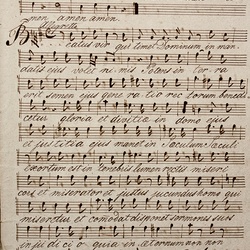 men amen amen
Beatus vir qui timet Dominum in man
datis ejus volet ni mis Potens in ter ra
erit semen ejus gene ra tio rec torum bened:
cetur gloria et divitiæ in domo ejus
et justitia ejus manet in Saculum Saculi
exortum est in tenebris lumen rectis miseri
cors et miserator et justus jucundus homo qui
miseretur et comodat disponet sermones suos
in ju di ci o quia in æternum non non